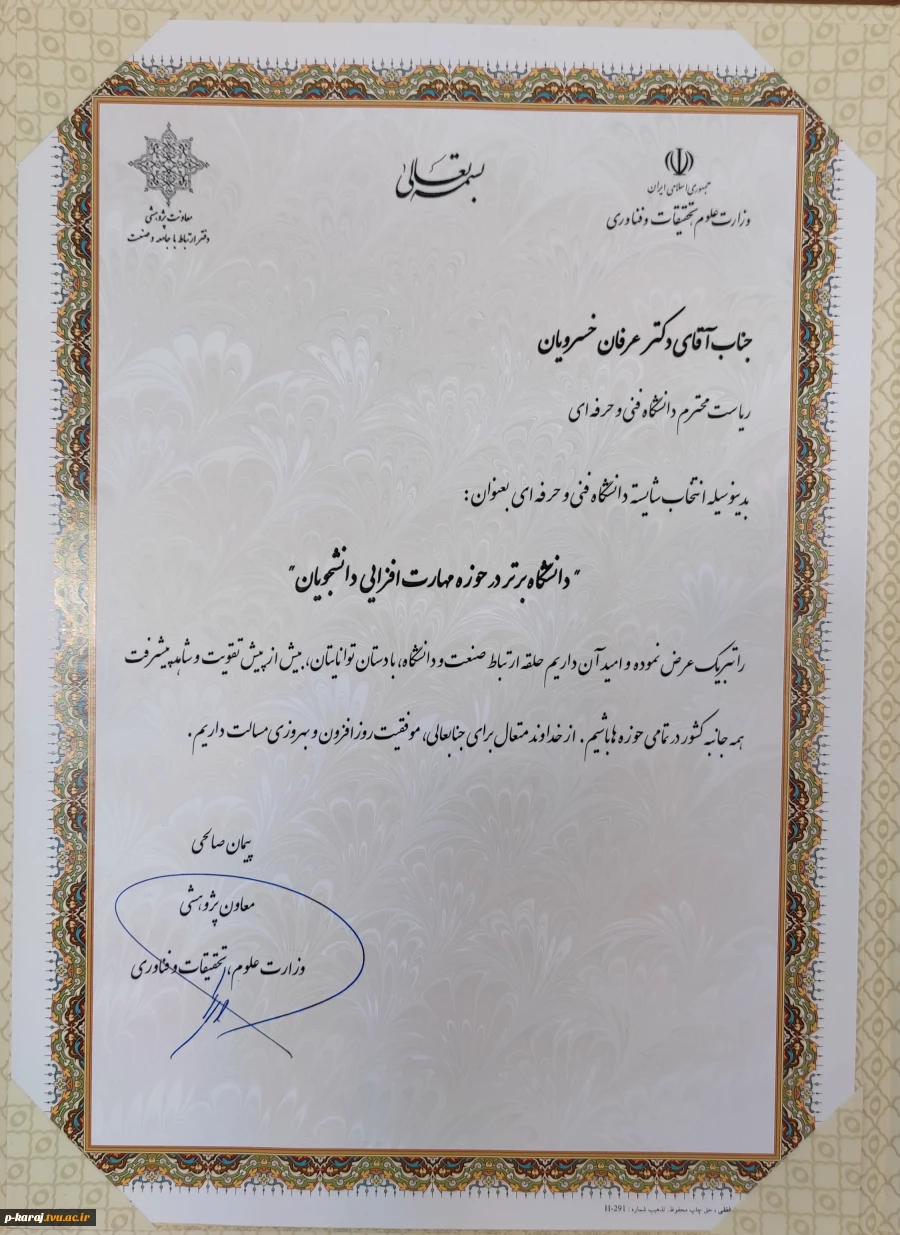 بسمه تعالی
جمهوری اسلامی ایران
وزارت علوم تحقیقات و فناوری
معاونت پژوهشی
دفتر ارتباط با جامعه و صنعت
جناب آقای دکتر عرفان خسرویان
ریاست محترم دانشگاه فنی و حرفه ای
بدینوسیله انتخاب شایسته دانشگاه فنی و حرفه ای بعنوان:
"دانشگاه برتر در حوزه مهارت افزایی دانشجویان"
را تبریک عرض نموده و امید آن داریم حلقه ارتباط صنعت و دانشگاه، با دستان توانایتان، بیش از پیش تقویت و شاهد پیشرفت
همه جانبه کشور در تمامی حوزه ها باشیم. از خداوند متعال برای جنابعالی، موفقیت روزافزون و بهروزی مسالت داریم.
پیمان صالحی
معاون پژوهشی
وزارت علوم، تحقیقات و فناوری
حق چاپ محفوظ. تذهیب شماره: H-291
p-karaj.tvu.ac.ir